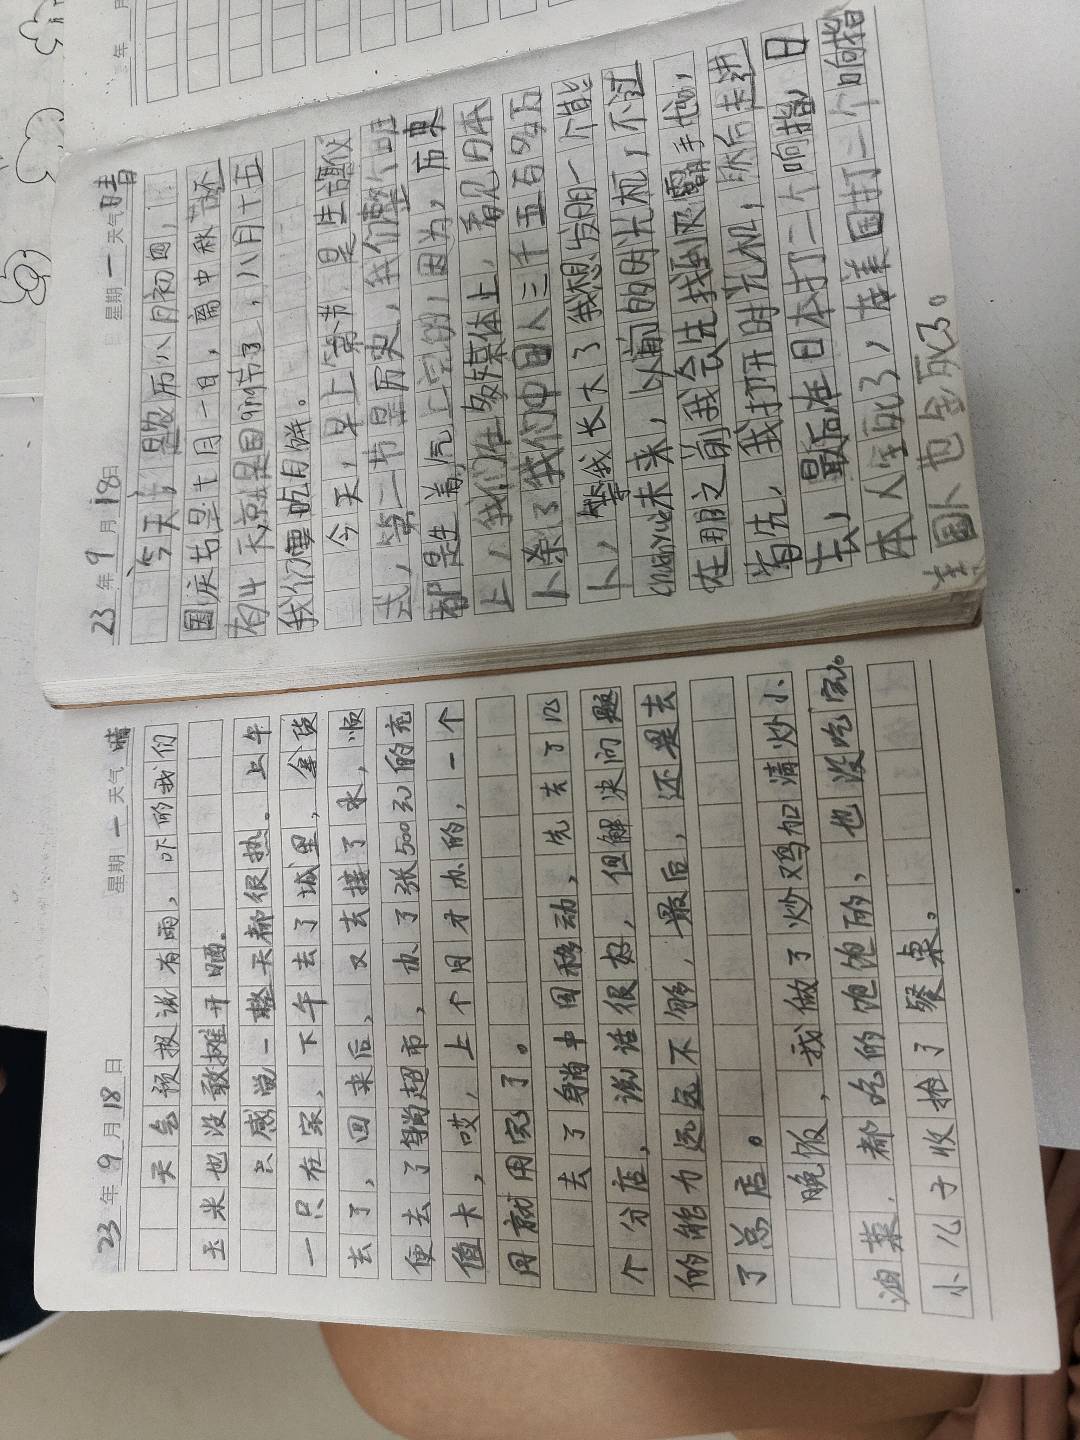 23年9月18日 星期一 天气晴
天气预报说有雨，吓的我们
玉米也没敢摊开晒。
只感觉一整天都很热。上午
一只在家，下午去了城里，拿货
去了，回来后，又去接了水，顺
便去了趟超市，办了张500元的充
值卡，哎，上个月才办的，一个
月就用完了。
去了趟中国移动，先去了几
个分店，说话很好，但解决问题
的能力远远不够，最后，还是去
了总店。
晚饭，我做了炒鸡加清炒小
油菜，都吃的饱饱的，也没吃完。
小儿子收拾了餐桌。
23年9月18日 星期一 天气晴
今天，是农历八月初四，
国庆节是十月一日，离中秋节还
有 天，
我们要吃月饼。
今天，早上第一节是生活仪
式，第二节是历史，我们整个班
都是生着气上完的，因为，历史
上，我们在多媒体上，看见日本
人杀了我们中国人三千五百多万
人，等我长大了我想发明一个能
chuānyuè未来，以前的时光机，不过
在那之前我会先找到灭霸手套，
首先，我打开时光机，然后走进
去，最后在日本打一个响指，日
本人全死了，在美国打一个响指
美国人也全死了。